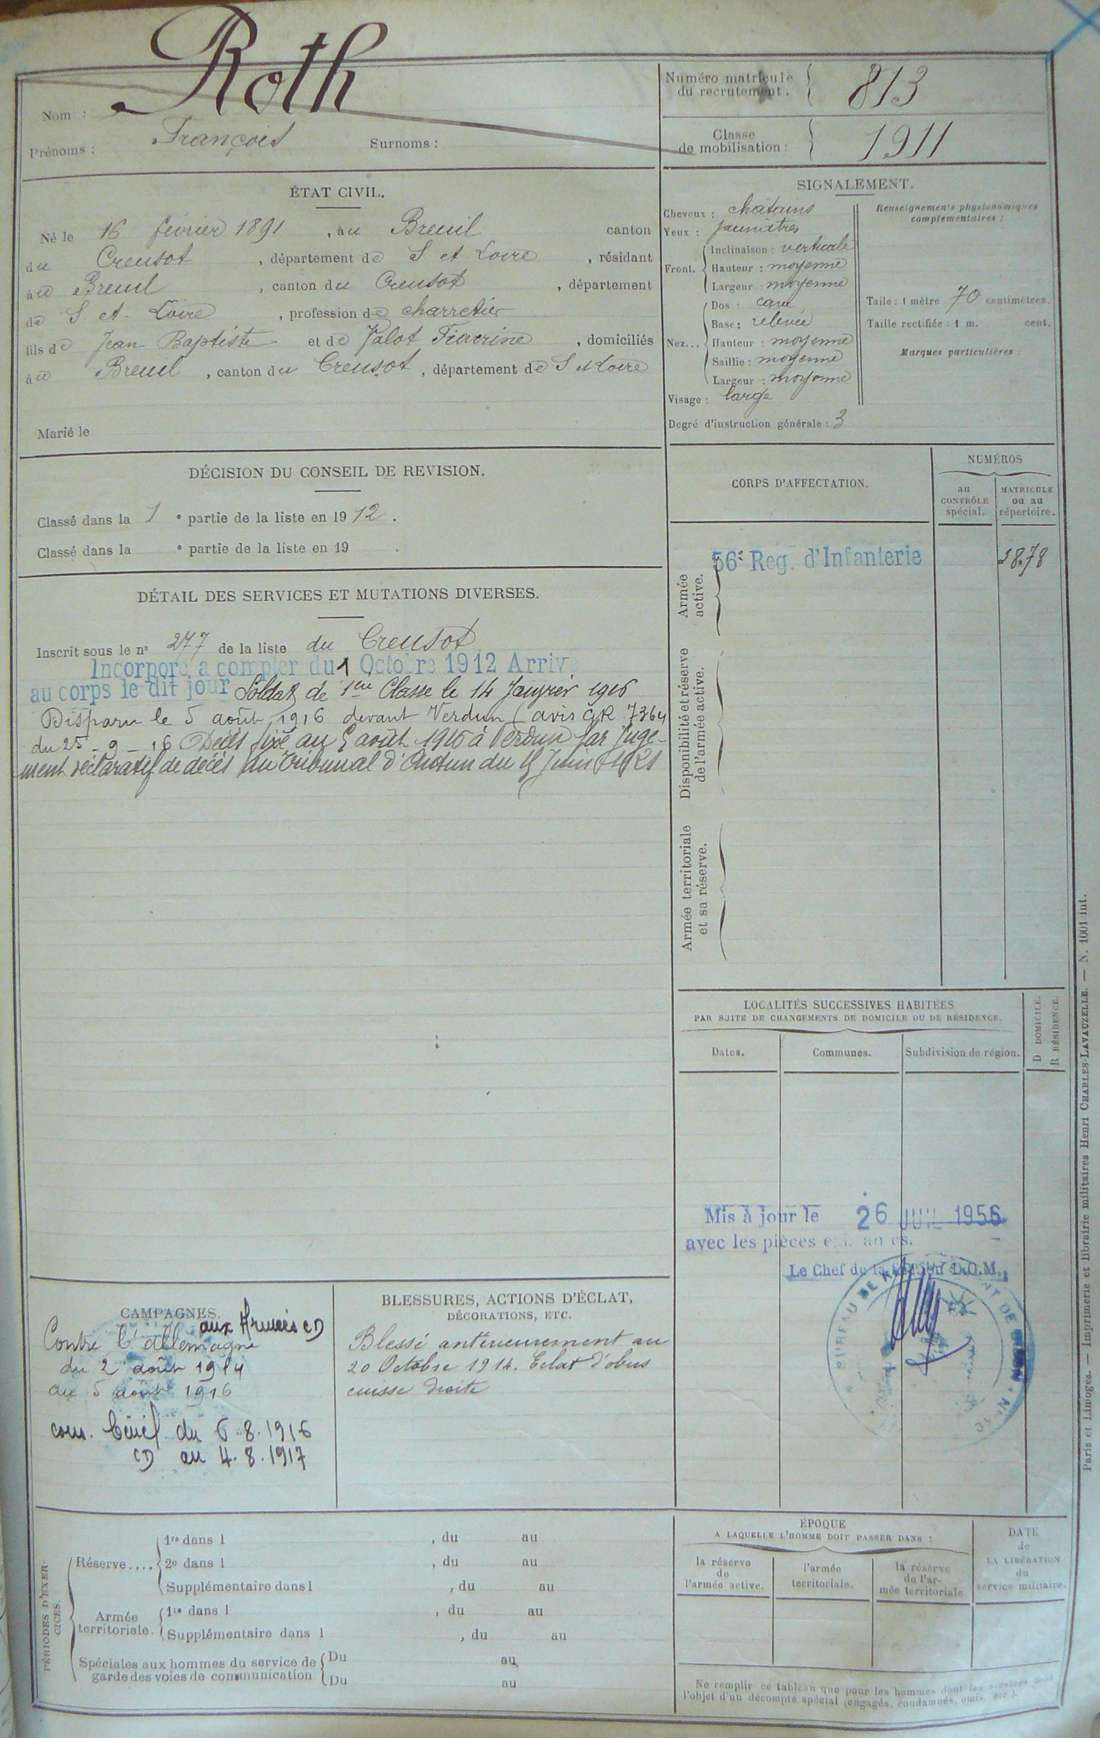 Nom : Roth
Prénoms : François Surnoms :
Numéro matricule du recrutement. 813
Classe de mobilisation : 1911
ÉTAT CIVIL.
Né le 16 février 1891, au Breuil canton
du Creusot, département de S et Loire, résidant
à au Breuil, canton du Creusot, département
de S et Loire, profession de charretier
fils de Jean Baptiste et de Valot Fiacrine, domiciliés
à au Breuil, canton du Creusot, département de S et Loire
Marié le
SIGNALEMENT.
Cheveux : chatains
Yeux : jaunâtres
Front. Inclinaison : verticale
Hauteur : moyenne
Largeur : moyenne
Nez... Dos : cave
Base : relevée
Hauteur : moyenne
Saillie : moyenne
Largeur : moyenne
Visage : large
Degré d'instruction générale : 3
Renseignements physionomiques
complémentaires :
Taille : 1 mètre 70 centimètres.
Taille rectifiée : 1 m. cent.
Marques particulières :
DÉCISION DU CONSEIL DE REVISION.
Classé dans la 1 e partie de la liste en 1912.
Classé dans la e partie de la liste en 19 .
DÉTAIL DES SERVICES ET MUTATIONS DIVERSES.
Inscrit sous le n° 277 de la liste du Creusot
Incorporé à compter du 1 Octobre 1912 Arrivé
au corps le dit jour Soldat de 1ère Classe le 14 Janvier 1916
Disparu le 5 août 1916 devant Verdun (avis GR 7364
du 25-9-16 Décès fixé au 5 août 1916 à Verdun par Juge-
ment déclaratif de décès du Tribunal d'Autun du Juin 1921
CORPS D'AFFECTATION.
NUMÉROS
au CONTRÔLE spécial.
MATRICULE ou au répertoire.
Armée active.
56e Reg. d'Infanterie 2878
Disponibilité et réserve de l'armée active.
Armée territoriale et sa réserve.
LOCALITÉS SUCCESSIVES HABITÉES
PAR SUITE DE CHANGEMENTS DE DOMICILE OU DE RÉSIDENCE.
Dates. Communes. Subdivision de région.
D DOMICILE.
R RÉSIDENCE.
Mis à jour le 26 JUIL 1956
avec les pièces
Le Chef de la Section D.O.M.
BUREAU DE
CAMPAGNES.
Contre l'allemagne aux Armées CD
du 2 août 1914
au 5 août 1916
cous. Bénéf du 6.8.1916
CD au 4.8.1917
BLESSURES, ACTIONS D'ÉCLAT,
DÉCORATIONS, ETC.
Blessé antérieurement au
20 Octobre 1914. Eclat d'obus
cuisse droite
PÉRIODES D'EXERCICES.
Réserve.... 1re dans l , du au
2e dans l , du au
Supplémentaire dans l , du au
Armée territoriale. 1re dans l , du au
Supplémentaire dans l , du au
Spéciales aux hommes du service de garde des voies de communication Du au
Du au
ÉPOQUE
A LAQUELLE L'HOMME DOIT PASSER DANS :
la réserve de l'armée active.
l'armée territoriale.
la réserve de l'armée territoriale
DATE de LA LIBÉRATION du service militaire.
Ne remplir ce tableau que pour les hommes dont les services font
l'objet d'un décompte spécial (engagés, condamnés, omis, etc.).
Paris et Limoges. — Imprimerie et librairie militaires Henri CHARLES-LAVAUZELLE. — N. 1001 int.